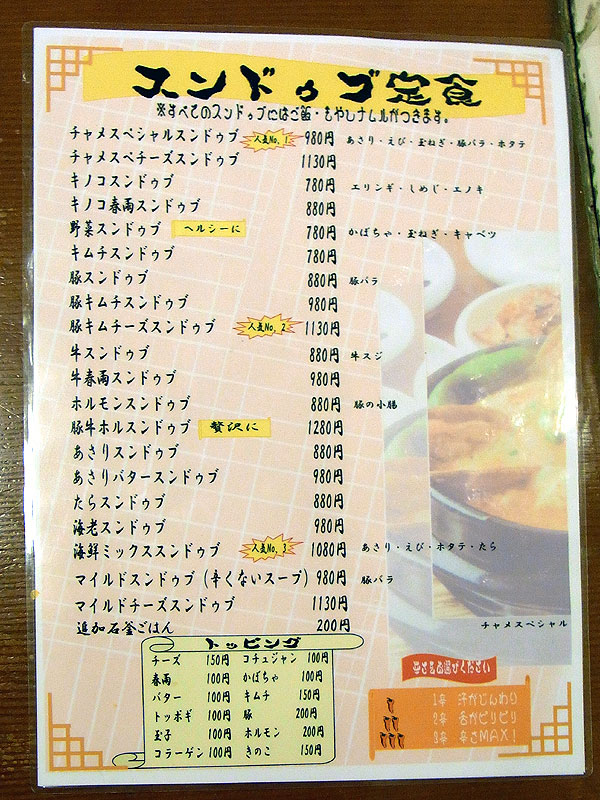 スンドゥブ定食
※すべてのスンドゥブにはご飯・もやしナムルがつきます。
チャメスペシャルスンドゥブ 人気No.1 980円 あさり・えび・玉ねぎ・豚バラ・ホタテ
チャメスペチーズスンドゥブ 1130円
キノコスンドゥブ 780円 エリンギ・しめじ・エノキ
キノコ春雨スンドゥブ 880円
野菜スンドゥブ ヘルシーに 780円 かぼちゃ・玉ねぎ・キャベツ
キムチスンドゥブ 780円
豚スンドゥブ 880円 豚バラ
豚キムチスンドゥブ 980円
豚キムチーズスンドゥブ 人気No.2 1130円
牛スンドゥブ 880円 牛スジ
牛春雨スンドゥブ 980円
ホルモンスンドゥブ 880円 豚の小腸
豚牛ホルスンドゥブ 贅沢に 1280円
あさりスンドゥブ 880円
あさりバタースンドゥブ 980円
たらスンドゥブ 880円
海老スンドゥブ 980円
海鮮ミックススンドゥブ 人気No.3 1080円 あさり・えび・ホタテ・たら
マイルドスンドゥブ(辛くないスープ) 980円 豚バラ
マイルドチーズスンドゥブ 1130円
追加石釜ごはん 200円
チャメスペシャル
トッピング
チーズ 150円 コチュジャン 100円
春雨 100円 かぼちゃ 100円
バター 100円 キムチ 150円
トッポギ 100円 豚 200円
玉子 100円 ホルモン 200円
コラーゲン 100円 きのこ 150円
辛さをお選びください
1辛 汗がじんわり
2辛 舌がピリピリ
3辛 辛さMAX!